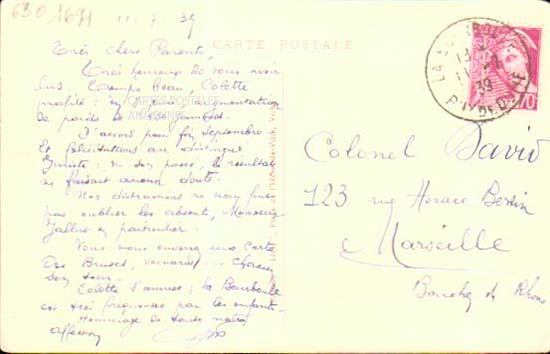 630 1691
11-7-39
CARTE POSTALE
Très chers Parents
Très heureux de vous avoir
lus. Temps beau, Colette
profite : en augmentation
de poids
CARTES POSTALES
ANCIENNES
D'accord pour fin septembre
Et félicitations au distingué
Juriste : ne son passé, le résultat
ne faisait aucun doute.
Nos distractions ne nous font
pas oublier les absents, Monsieur
en particulier.
Vous nous enverrez une carte
des ... Chacun
son tour.
Colette s'amuse ; la Bourboule
est très fréquentée par les enfants.
Hommage de toute notre
affection
LA BOURBOULE
39
PUY DE DOME
70
Colonel David
123 rue Horace Bertin
Marseille
Bouches du Rhône